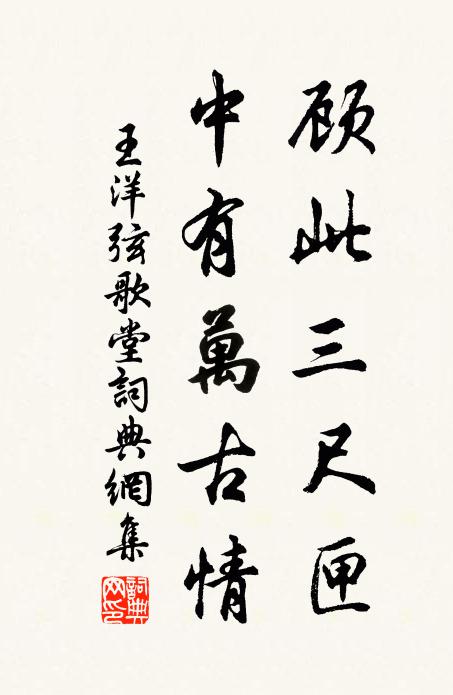 顾此三尺匣
中有萬古情
王洋弦歌堂詞典網集
詞典網印